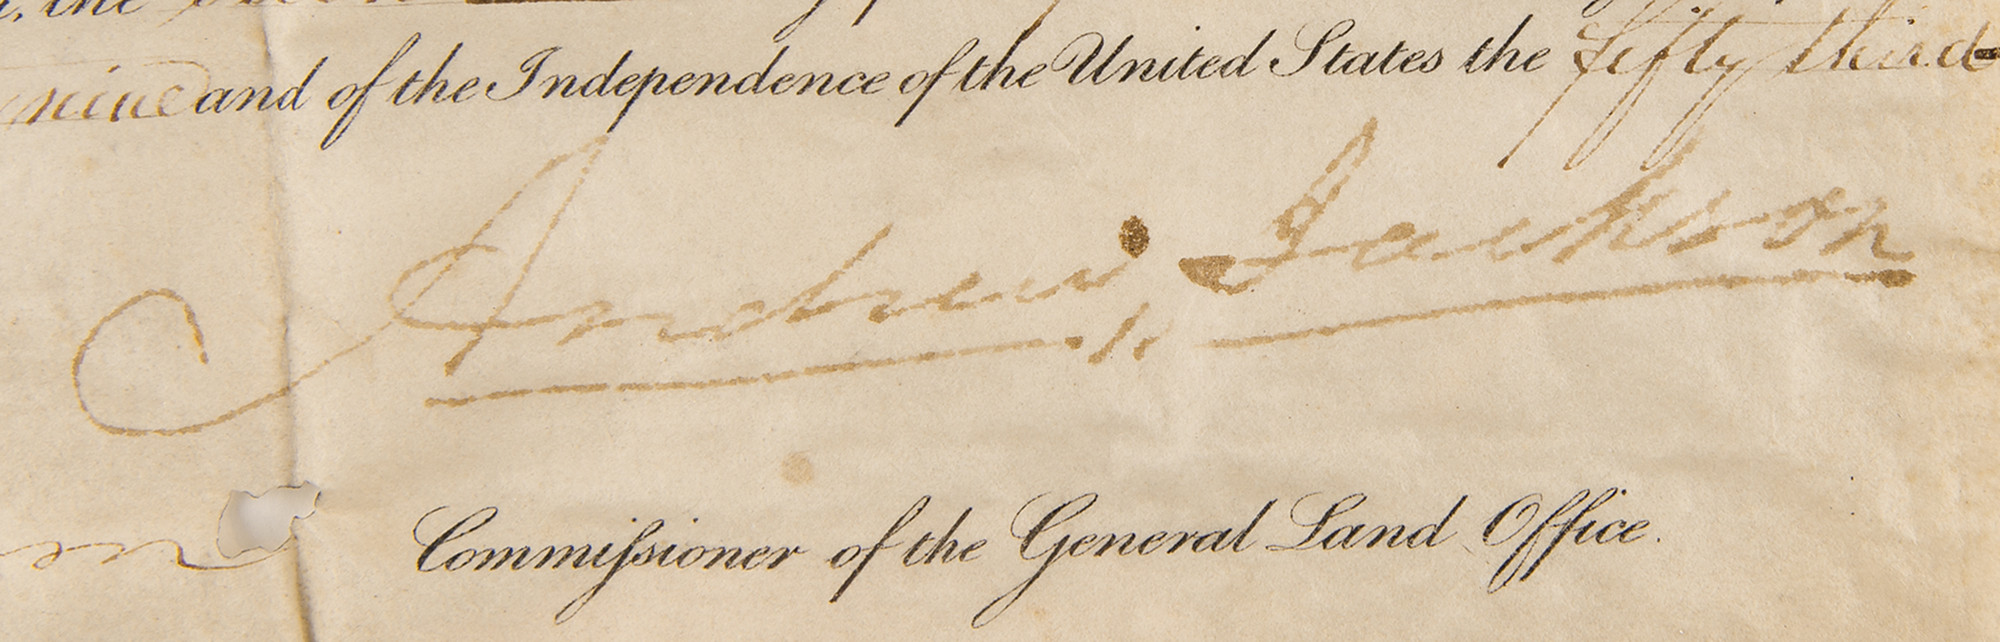 the
nine and of the Independence of the United States the fifty third
Andrew Jackson
Commiſsioner of the General Land Office.